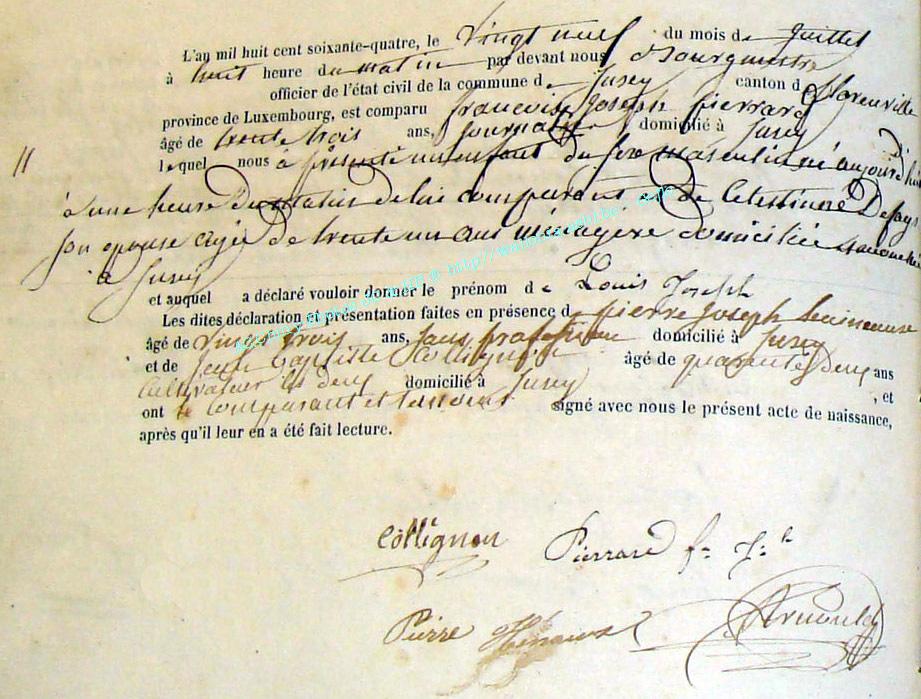 L'an mil huit cent soixante-quatre, le Vingt neuf du mois de Juillet
à huit heure du matin par devant nous Bourgmestre
officier de l'état civil de la commune de Jusey canton de florenville
province de Luxembourg, est comparu françois Joseph Pierrard
âgé de trente trois ans, Journalier domicilié à Jusey
lequel nous à présenté un enfant du sexe masculin né aujourd'hui
à une heure du matin de lui comparant et de Celestine Defay
son épouse agée de trente un ans ménagère domiciliée
à Jusey
et auquel a déclaré vouloir donner le prénom de Louis Joseph
Les dites déclaration et présentation faites en présence de pierre Joseph
âgé de Vingt trois ans, sans profession domicilié à Jusey
et de Jean Baptiste Collignon âgé de quarante deux ans
Cultivateur les deux domicilié à Jusey, et
ont le Comparant et temoins signé avec nous le présent acte de naissance,
après qu'il leur en a été fait lecture.
Collignon Pierrard f. J.h
Pierre Arnould